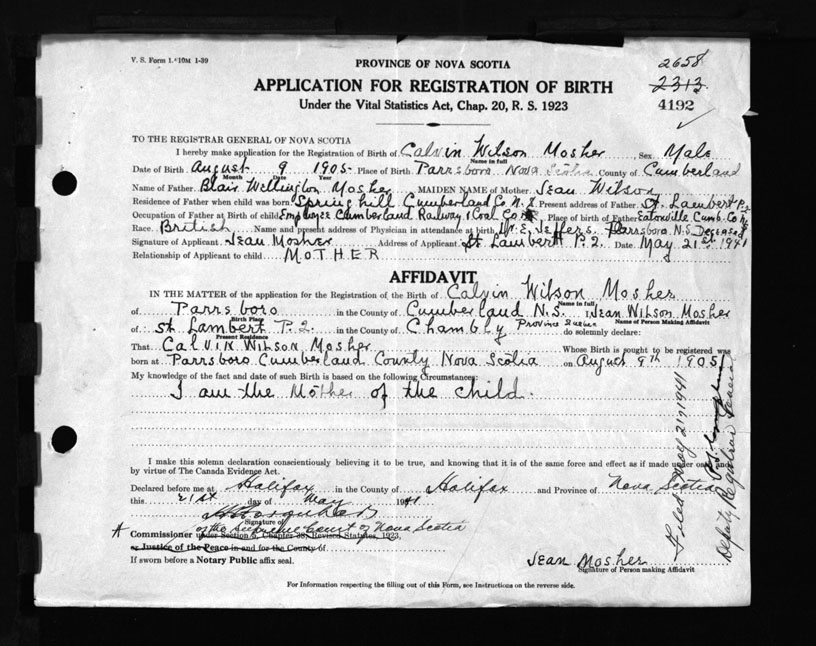 V. S. Form 1. 10M 1-39
PROVINCE OF NOVA SCOTIA
2658
2313
APPLICATION FOR REGISTRATION OF BIRTH
4192
Under the Vital Statistics Act, Chap. 20, R. S. 1923
TO THE REGISTRAR GENERAL OF NOVA SCOTIA
I hereby make application for the Registration of Birth of Calvin Wilson Mosher Sex Male
Name in full
Date of Birth August 9 1905 Place of Birth Parrsboro Nova Scotia County of Cumberland
Month Date Year
Name of Father Blair Wellington Mosher MAIDEN NAME of Mother Jean Wilson
Residence of Father when child was born Spring hill Cumberland Co N.S. Present address of Father St. Lambert P.2
Occupation of Father at Birth of child Employee Cumberland Railway & Coal Co Place of birth of Father Eatonville Cumb. Co N.S
Race. British Name and present address of Physician in attendance at birth Dr. E. Jeffers Parrsboro N.S. Deceased
Signature of Applicant Jean Mosher Address of Applicant St Lambert P.2. Date May 21st 1941
Relationship of Applicant to child MOTHER
AFFIDAVIT
IN THE MATTER of the application for the Registration of the Birth of Calvin Wilson Mosher
Name in full
of Parrsboro in the County of Cumberland N.S. I, Jean Wilson Mosher
Birth Place Name of Person Making Affidavit
of St. Lambert P.2 in the County of Chambly Province Quebec do solemnly declare:
Present Residence
That Calvin Wilson Mosher Whose Birth is sought to be registered was
born at Parrsboro Cumberland County Nova Scotia on August 9th 1905
My knowledge of the fact and date of such Birth is based on the following Circumstances:
I am the Mother of the child.
I make this solemn declaration conscientiously believing it to be true, and knowing that it is of the same force and effect as if made under oath and
by virtue of The Canada Evidence Act.
Declared before me at Halifax in the County of Halifax and Province of Nova Scotia
this 21st day of May 1941
Signature of
of the Supreme Court of Nova Scotia
A Commissioner under Section 5, Chapter 38, Revised Statutes, 1923,
or Justice of the Peace in and for the County of
If sworn before a Notary Public affix seal.
Jean Mosher
Signature of Person making Affidavit
For Information respecting the filling out of this Form, see Instructions on the reverse side.
Filed May 21, 1941
Deputy Registrar General